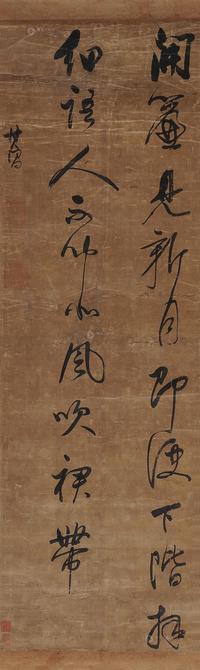 開簾見新月即便下階拜
細語人不聞北風吹裙帶